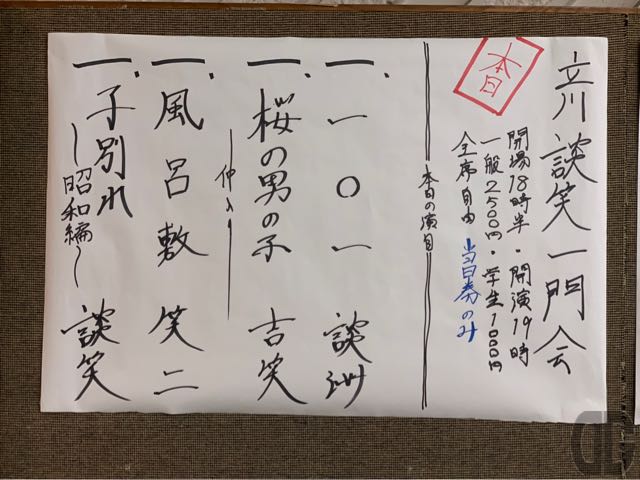 立川談笑一門会
本日
開場18時半・開演19時
一般2500円・学生1000円
全席自由 当日券のみ
本日の演目
一、一〇一 談洲
一、桜の男の子 吉笑
仲入
一、風呂敷 笑二
一、子別れ 談笑
〜昭和編〜